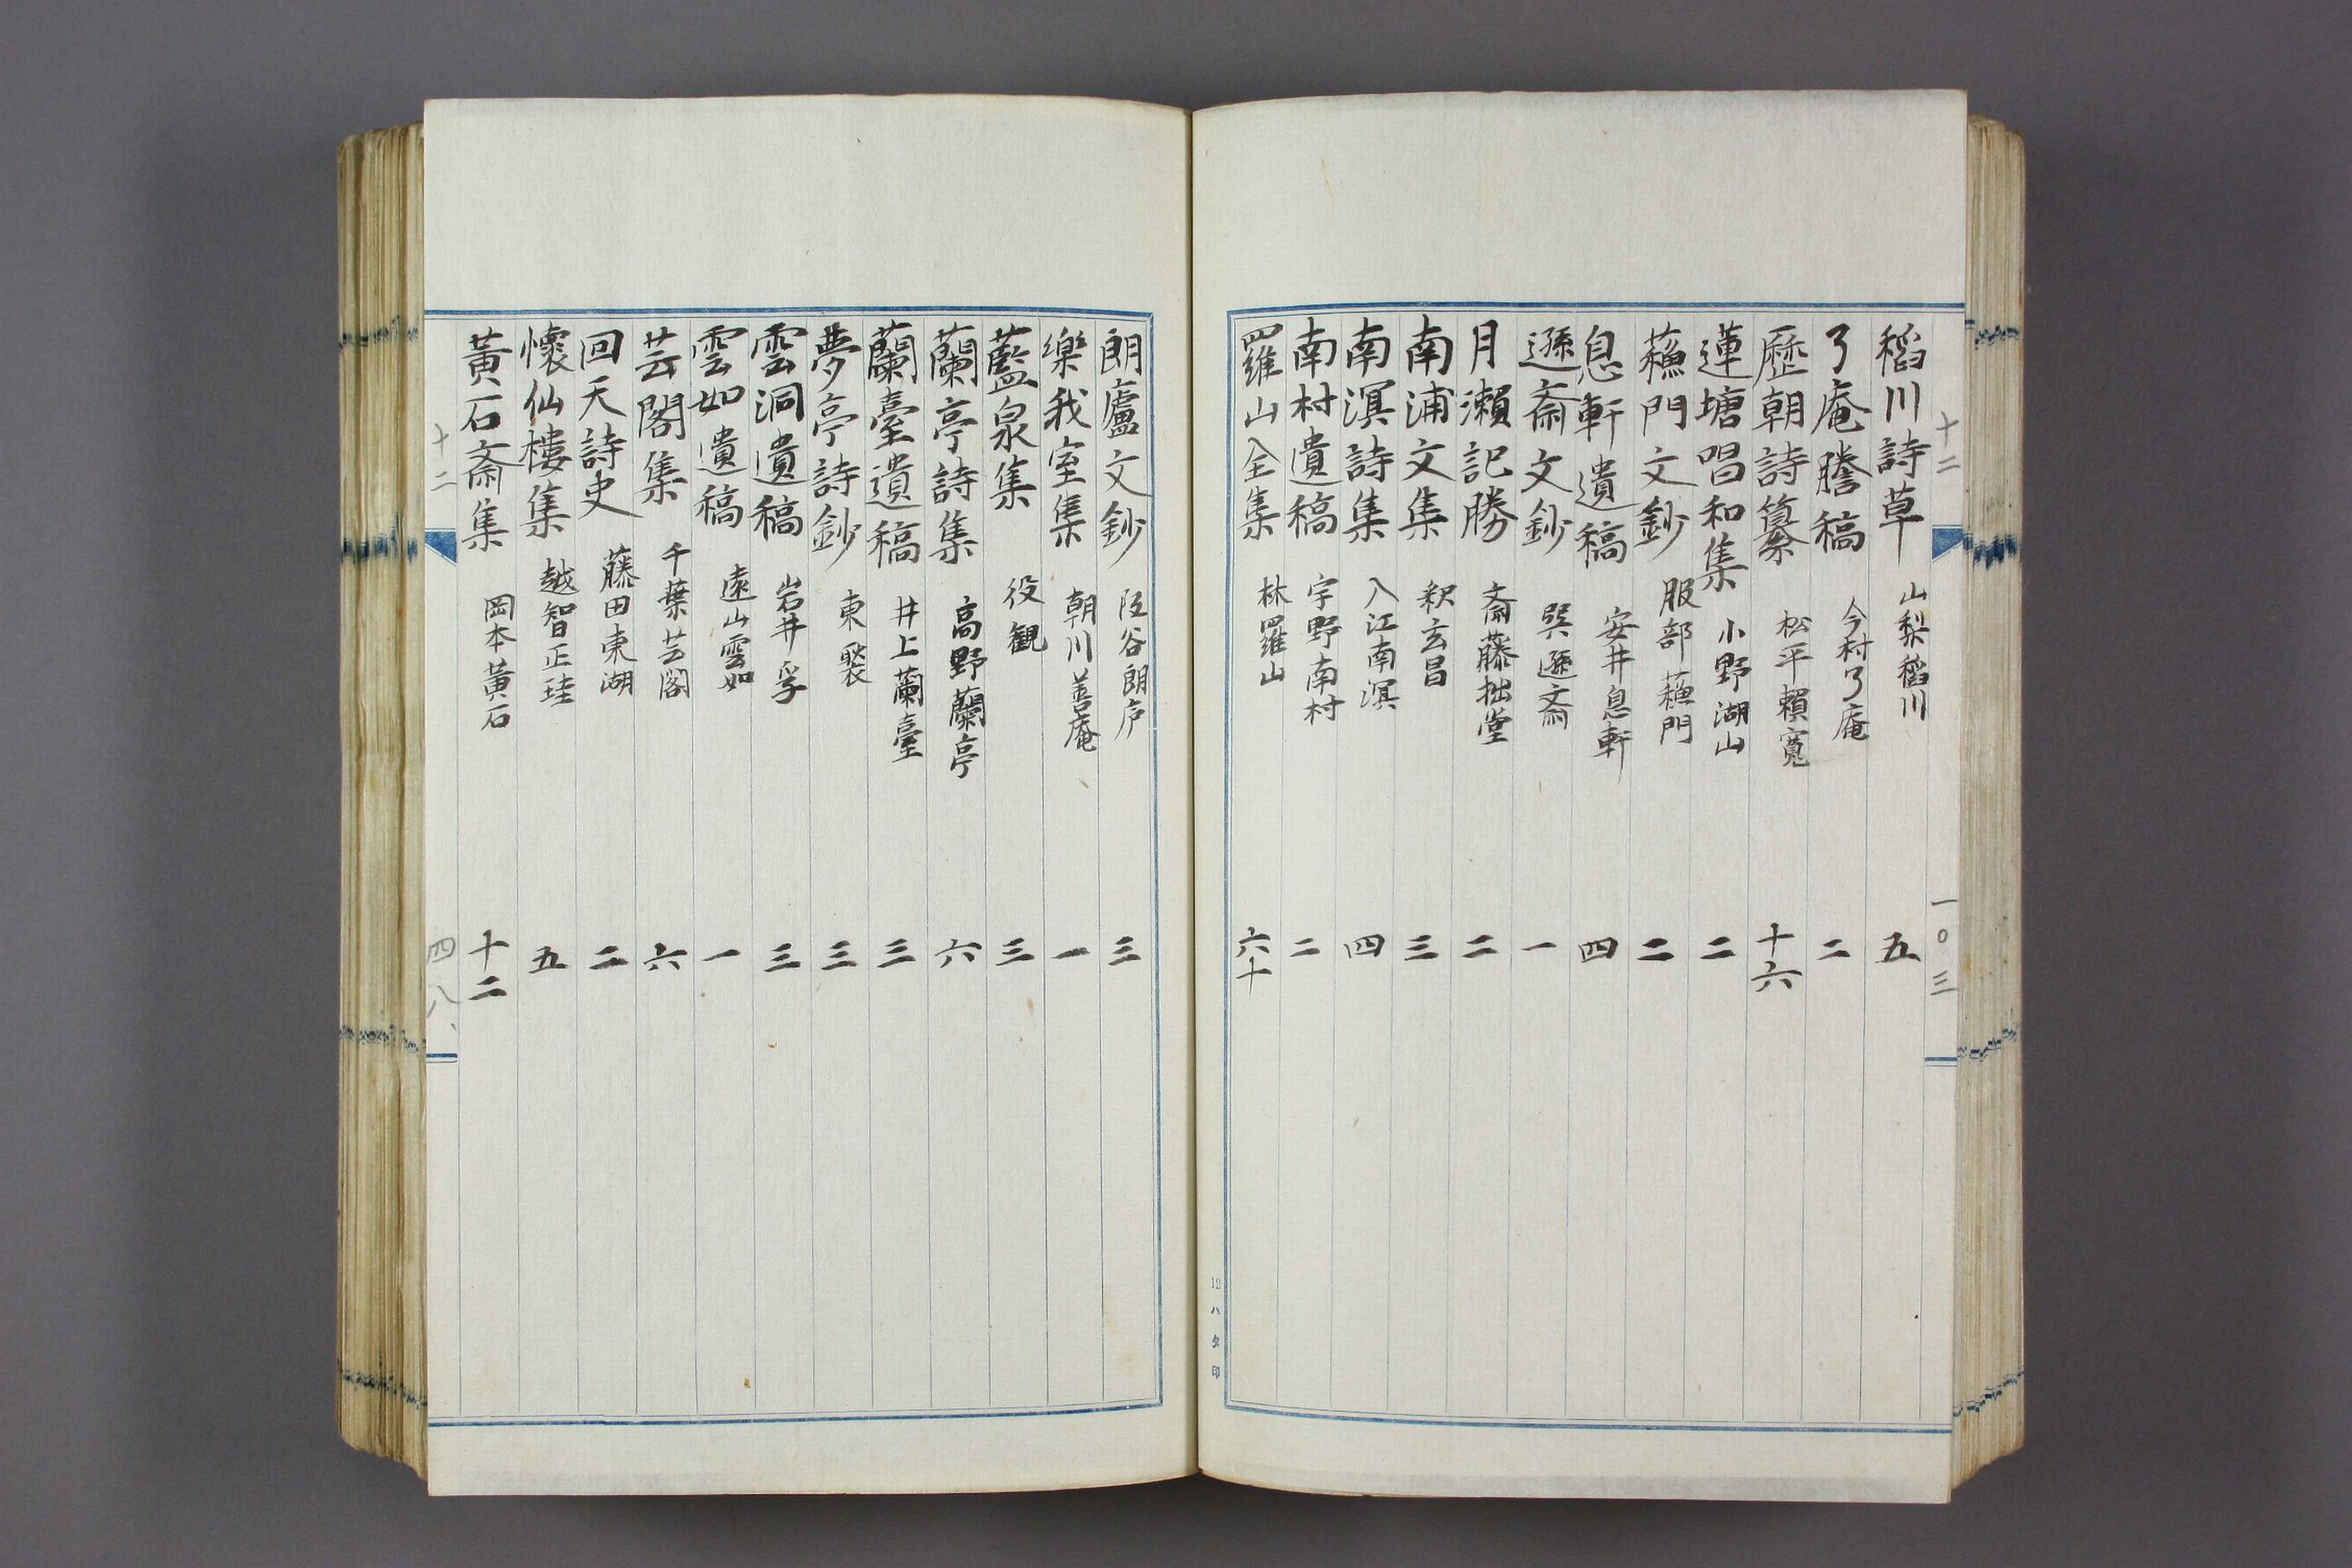 十二
一〇三
稻川詩草 山梨稻川 五
了庵謄稿 今村了庵 二
歴朝詩纂 松平賴寬 十六
蓮塘唱和集 小野湖山 二
蘓門文鈔 服部蘓門 二
息軒遺稿 安井息軒 四
遜斎文鈔 巽遜斎 一
月瀨記勝 斎藤拙堂 二
南浦文集 釈玄昌 三
南溟詩集 入江南溟 四
南村遺稿 宇野南村 二
羅山全集 林羅山 六十
12ハタ印
朗廬文鈔 阪谷朗庐 三
樂我室集 朝川善庵 一
藍泉集 役観 三
蘭亭詩集 高野蘭亭 六
蘭臺遺稿 井上蘭臺 三
夢亭詩鈔 東褧 三
雲洞遺稿 岩井孚 三
雲如遺稿 遠山雲如 一
芸閣集 千葉芸閣 六
回天詩史 藤田東湖 二
懷仙樓集 越智正珪 五
黃石斎集 岡本黃石 十二
十二
四八